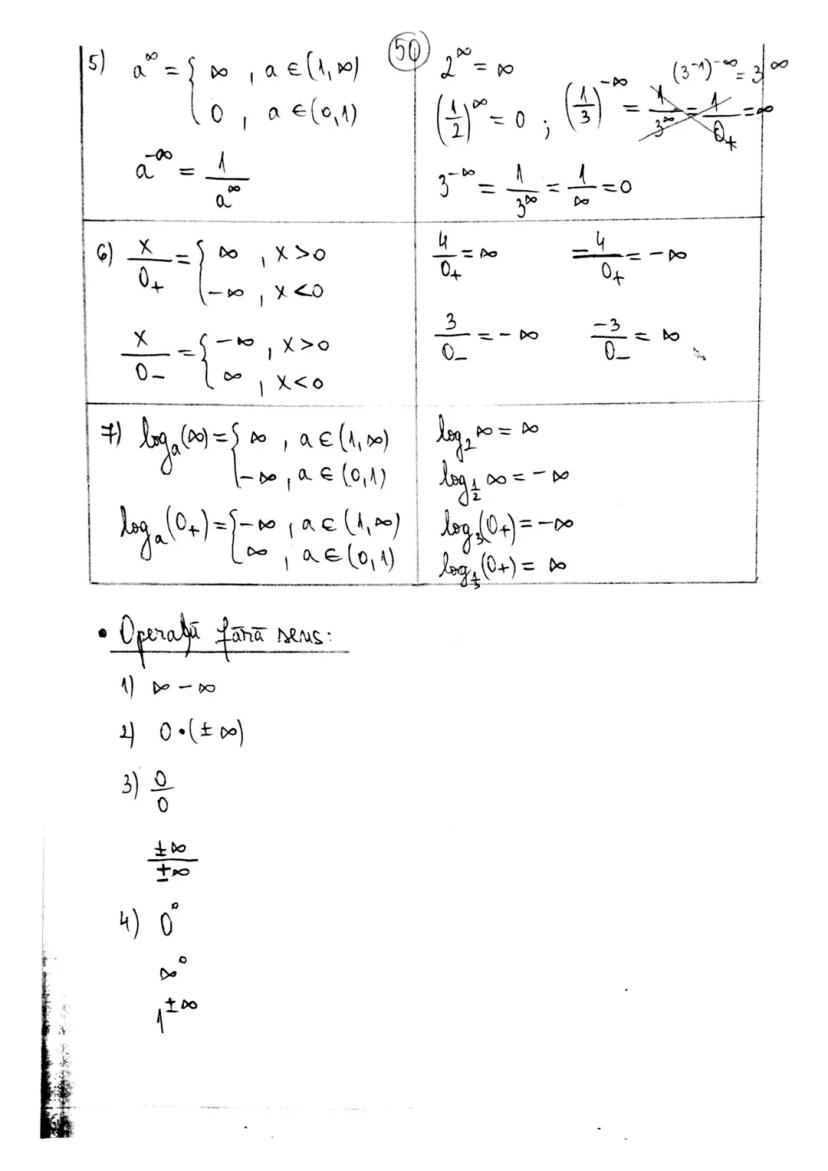 50
5) a^∞ = { ∞ , a ∈ (1, ∞)
0 , a ∈ (0,1)
a^-∞ = 1/a^∞
2^∞ = ∞
(1/2)^∞ = 0 ; (1/3)^-∞ = 1/3^∞ = 1/0+ = ∞
(3^-1)^-∞ = 3^∞
3^-∞ = 1/3^∞ = 1/∞ = 0
6) x/0+ = { ∞ , x > 0
-∞ , x < 0
x/0- = { -∞ , x > 0
∞ , x < 0
4/0+ = ∞ -4/0+ = -∞
3/0- = -∞ -3/0- = ∞
7) log_a(∞) = { ∞ , a ∈ (1, ∞)
-∞ , a ∈ (0,1)
log_a(0+) = { -∞ , a ∈ (1, ∞)
∞ , a ∈ (0,1)
log_2 ∞ = ∞
log_1/2 ∞ = -∞
log_3(0+) = -∞
log_1/3(0+) = ∞
• Operații fără sens:
1) ∞ - ∞
2) 0 • (± ∞)
3) 0/0
±∞/±∞
4) 0^0
∞^0
1^±∞